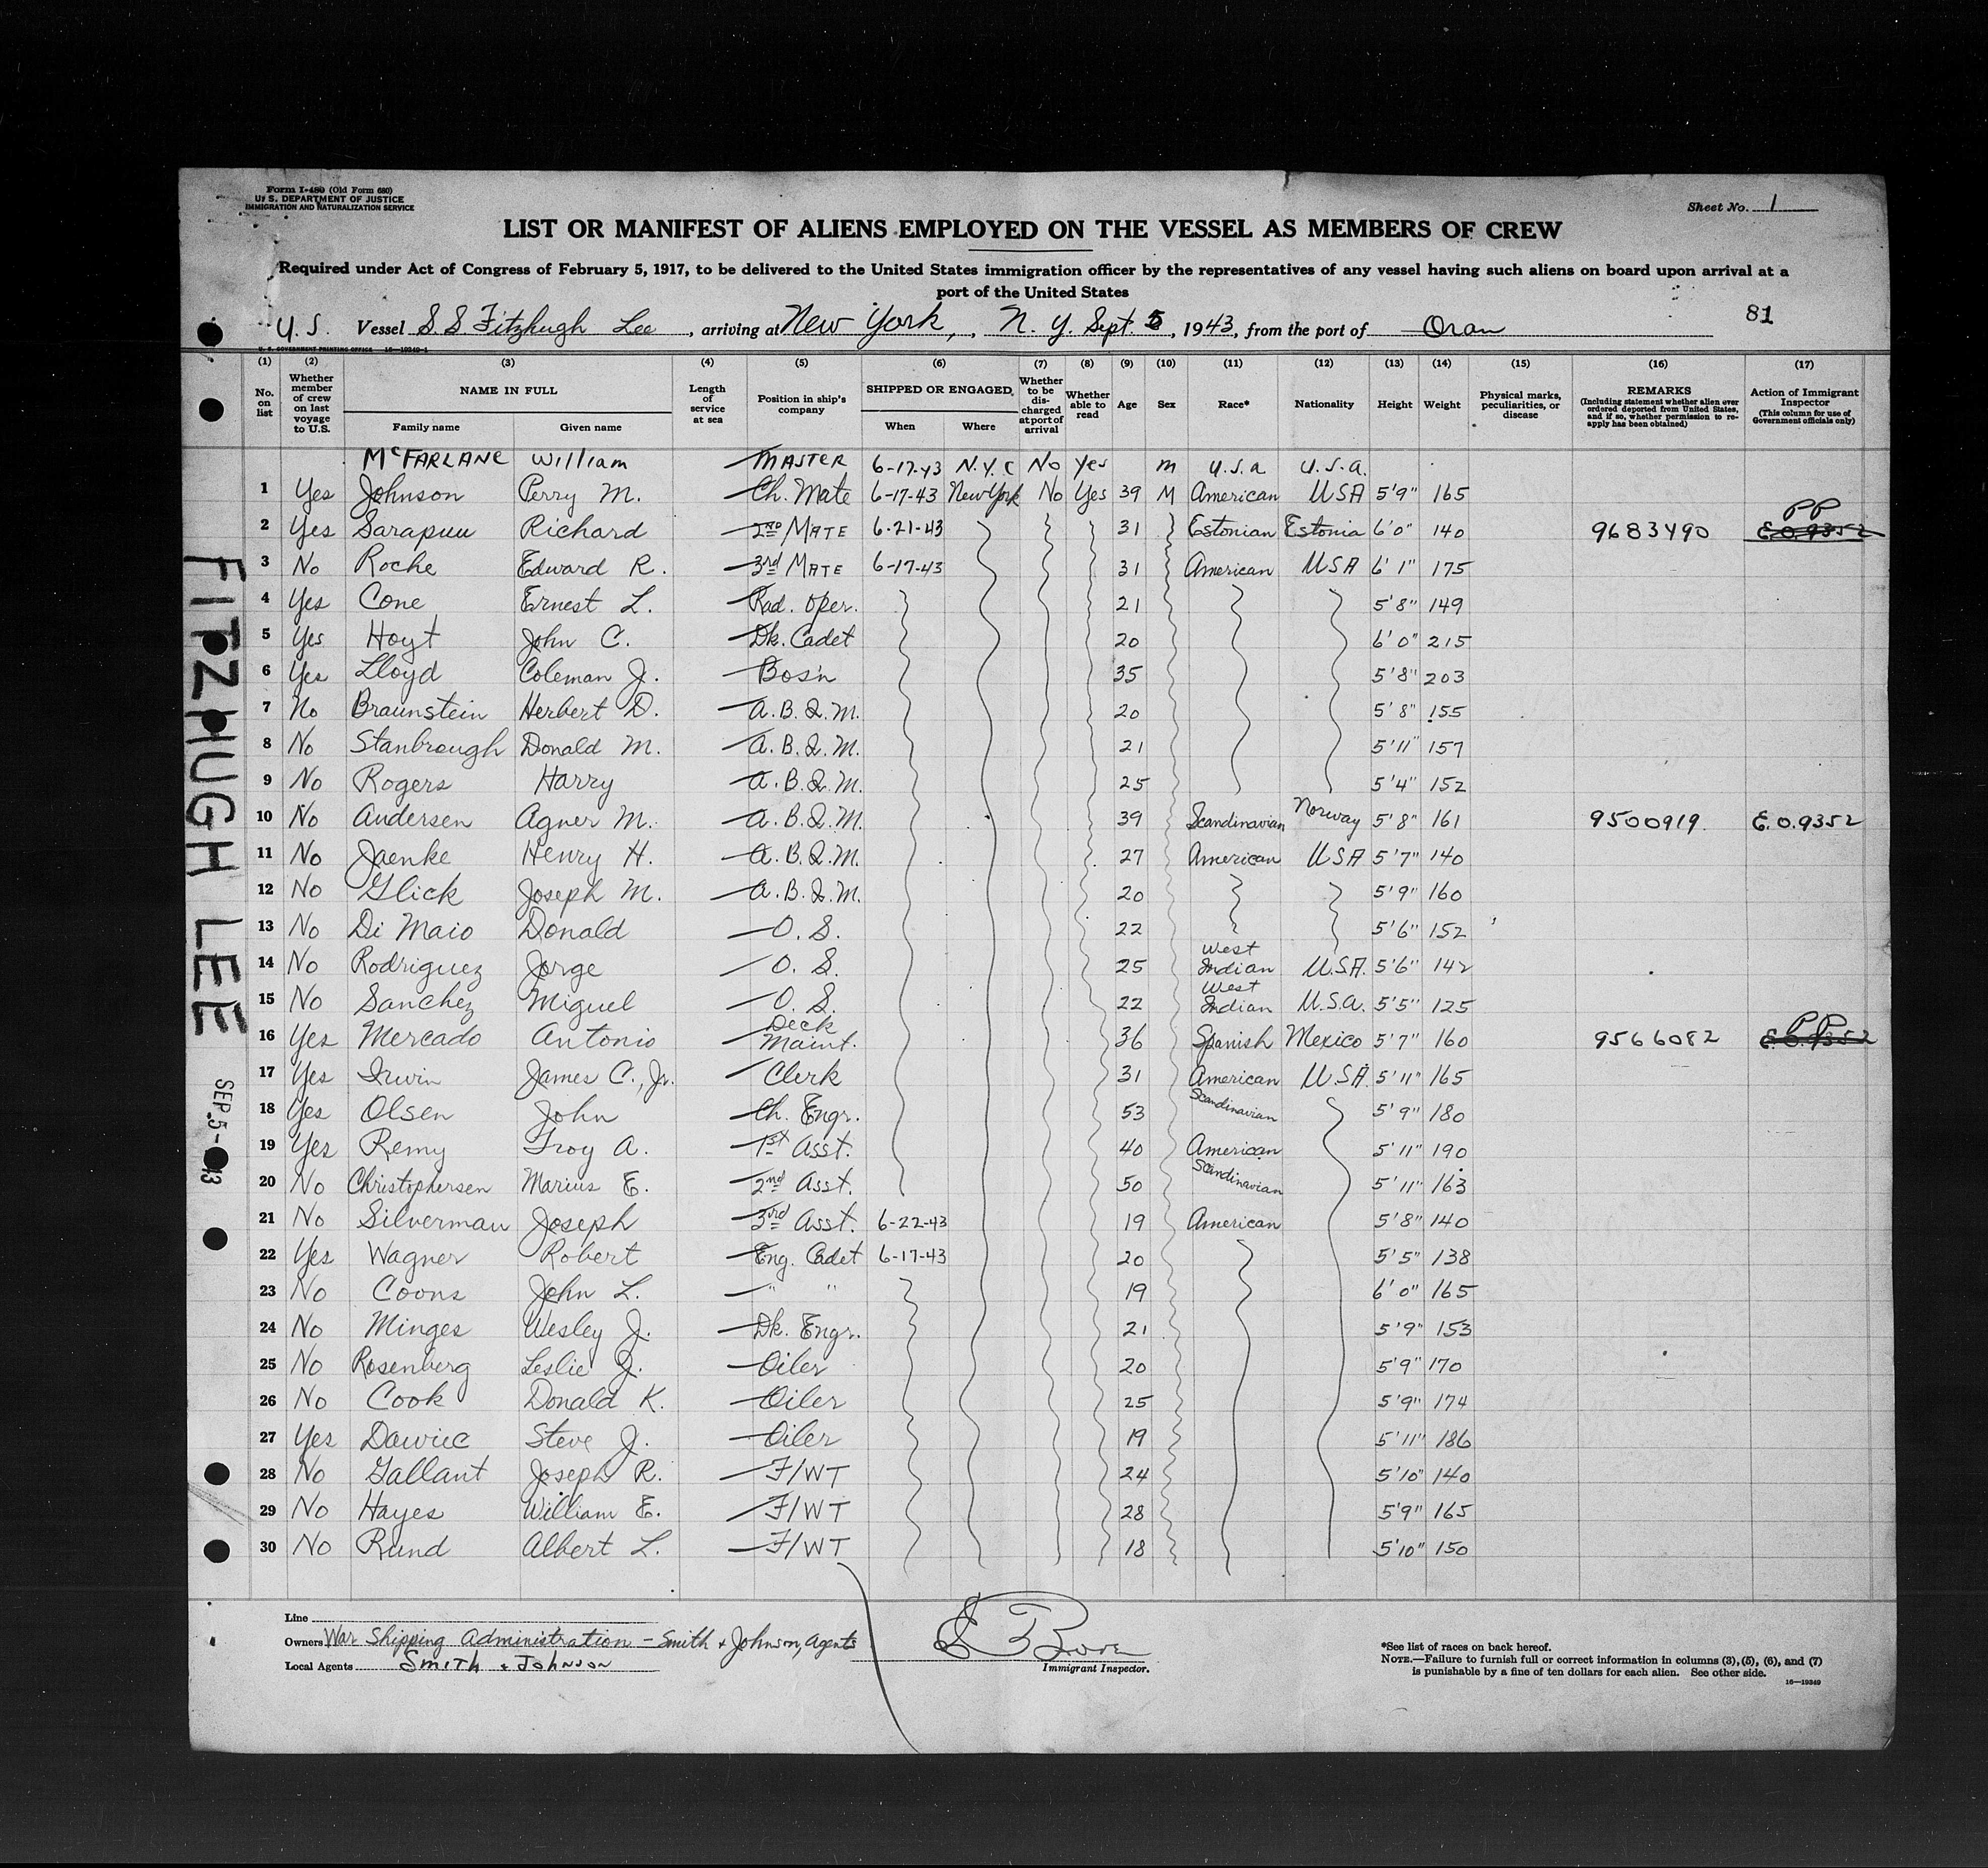 Form I-480 (Old Form 680)
U. S. DEPARTMENT OF JUSTICE
IMMIGRATION AND NATURALIZATION SERVICE
Sheet No. 1
LIST OR MANIFEST OF ALIENS EMPLOYED ON THE VESSEL AS MEMBERS OF CREW
Required under Act of Congress of February 5, 1917, to be delivered to the United States immigration officer by the representatives of any vessel having such aliens on board upon arrival at a
port of the United States
81
U.S. Vessel S.S. Fitzhugh Lee, arriving at New York, N.Y. Sept. 5, 1943, from the port of Oran
U. S. GOVERNMENT PRINTING OFFICE 16-19349-1
(1) (2) (3) (4) (5) (6) (7) (8) (9) (10) (11) (12) (13) (14) (15) (16) (17)
No. on list
Whether member of crew on last voyage to U.S.
NAME IN FULL
Family name Given name
Length of service at sea
Position in ship's company
SHIPPED OR ENGAGED
When Where
Whether to be discharged at port of arrival
Whether able to read
Age
Sex
Race*
Nationality
Height
Weight
Physical marks, peculiarities, or disease
REMARKS
(Including statement whether alien ever ordered deported from United States, and if so, whether permission to reapply has been obtained)
Action of Immigrant Inspector
(This column for use of Government officials only)
McFARLANE William MASTER 6-17-43 N.Y.C No Yes m U.S.a U.S.a.
1 Yes Johnson Perry M. Ch. Mate 6-17-43 New York No Yes 39 M American USA 5'9" 165
2 Yes Sarapuu Richard 2nd MATE 6-21-43 31 Estonian Estonia 6'0" 140 9683490 PP E.O.9352
3 No Roche Edward R. 3rd MATE 6-17-43 31 American USA 6'1" 175
4 Yes Cone Ernest L. Rad. Oper. 21 5'8" 149
5 Yes Hoyt John C. Dk. Cadet 20 6'0" 215
6 Yes Lloyd Coleman J. Bos'n 35 5'8" 203
7 No Braunstein Herbert D. A.B.&M. 20 5'8" 155
8 No Stanbrough Donald M. A.B.&M. 21 5'11" 157
9 No Rogers Harry A.B.&M. 25 5'4" 152
10 No Andersen Agner M. A.B.&M. 39 Scandinavian Norway 5'8" 161 9500919 E.O.9352
11 No Jaenke Henry H. A.B.&M. 27 American USA 5'7" 140
12 No Glick Joseph M. A.B.&M. 20 5'9" 160
13 No Di Maio Donald O.S. 22 5'6" 152
14 No Rodriguez Jorge O.S. 25 West Indian U.S.A. 5'6" 142
15 No Sanchez Miguel O.S. 22 West Indian U.S.a. 5'5" 125
16 Yes Mercado Antonio Deck Maint. 36 Spanish Mexico 5'7" 160 9566082 PP E.O.9352
17 Yes Irwin James C., Jr. Clerk 31 American U.S.A. 5'11" 165
18 Yes Olsen John Ch. Engr. 53 Scandinavian 5'9" 180
19 Yes Remy Troy A. 1st Asst. 40 American 5'11" 190
20 No Christophersen Marius E. 2nd Asst. 50 Scandinavian 5'11" 163
21 No Silverman Joseph 3rd Asst. 6-22-43 19 American 5'8" 140
22 Yes Wagner Robert Eng. Cadet 6-17-43 20 5'5" 138
23 No Coons John L. " " 19 6'0" 165
24 No Minges Wesley J. Dk. Engr. 21 5'9" 153
25 No Rosenberg Leslie J. Oiler 20 5'9" 170
26 No Cook Donald K. Oiler 25 5'9" 174
27 Yes Dawiec Steve J. Oiler 19 5'11" 186
28 No Gallant Joseph R. F/WT 24 5'10" 140
29 No Hayes William E. F/WT 28 5'9" 165
30 No Rund Albert L. F/WT 18 5'10" 150
FITZHUGH LEE
SEP. 5-
Line
Owners War Shipping Administration - Smith & Johnson, Agents
Local Agents SMITH & JOHNSON
Immigrant Inspector.
*See list of races on back hereof.
NOTE.—Failure to furnish full or correct information in columns (3), (5), (6), and (7)
is punishable by a fine of ten dollars for each alien. See other side.
16-19349